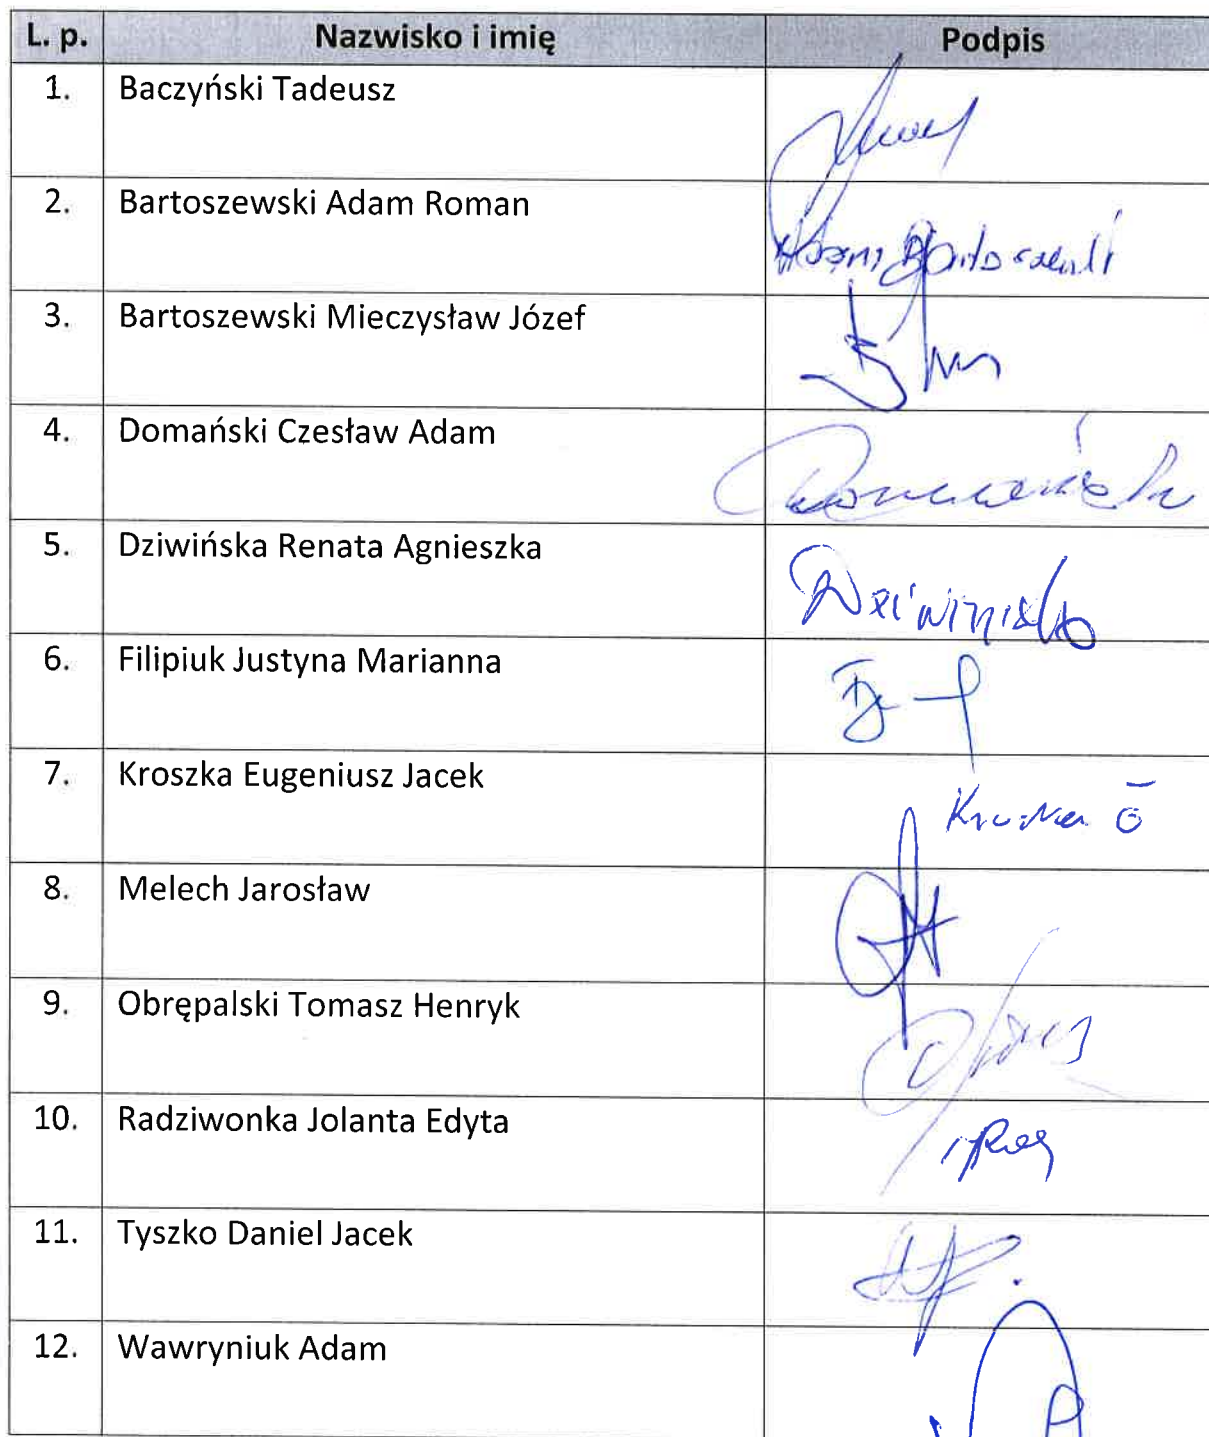 L. p. Nazwisko i imię Podpis
1. Baczyński Tadeusz
2. Bartoszewski Adam Roman
3. Bartoszewski Mieczysław Józef
4. Domański Czesław Adam
5. Dziwińska Renata Agnieszka
6. Filipiuk Justyna Marianna
7. Kroszka Eugeniusz Jacek
8. Melech Jarosław
9. Obrępalski Tomasz Henryk
10. Radziwonka Jolanta Edyta
11. Tyszko Daniel Jacek
12. Wawryniuk Adam